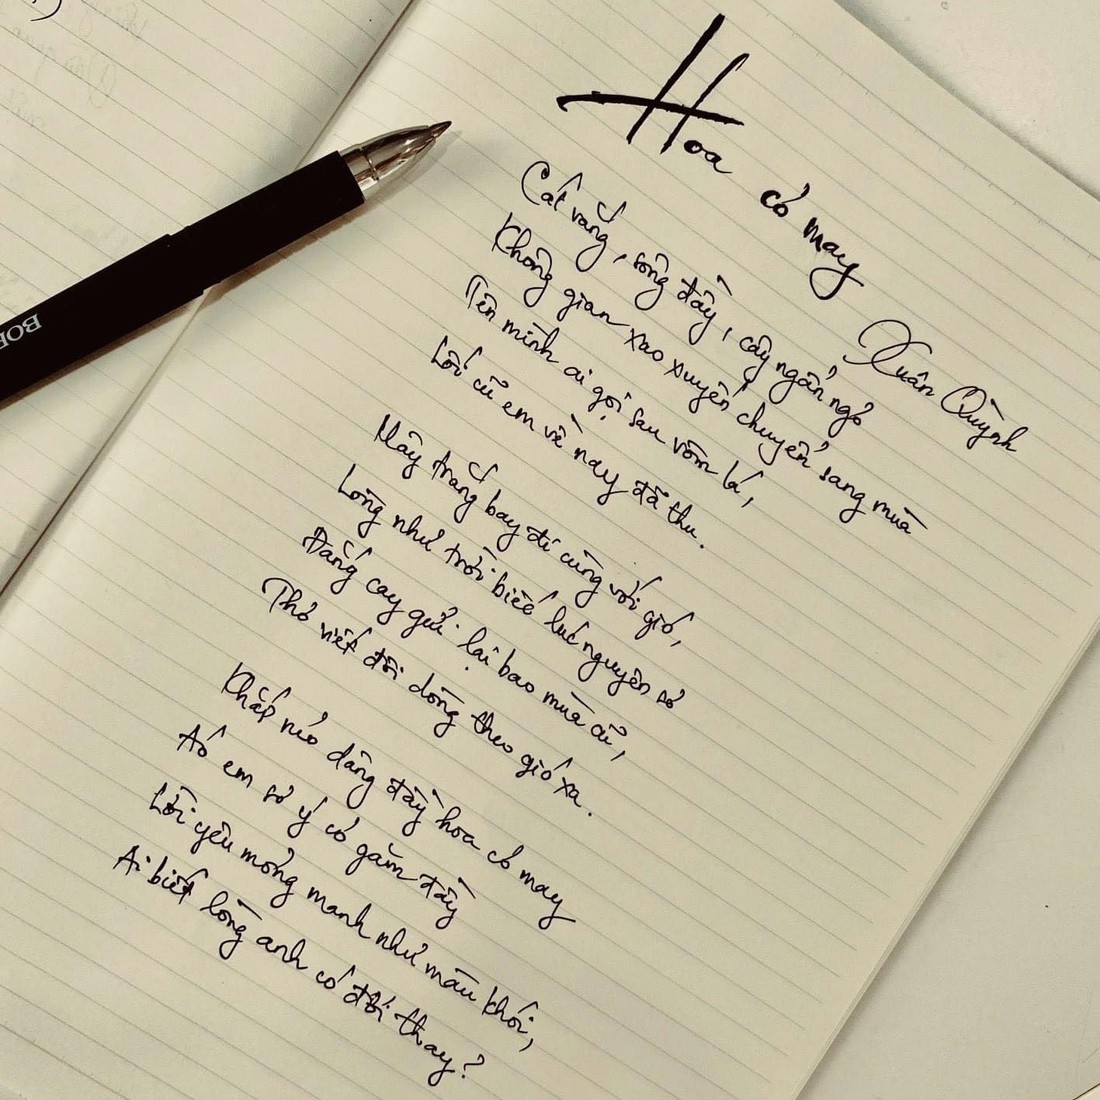 Hoa cỏ may
Xuân Quỳnh
Cát vắng, sông đầy, cây ngẩn ngơ
Không gian xao xuyến chuyển sang mùa
Tên mình ai gọi sau vòm lá,
Lối cũ em về nay đã thu.
Mây trắng bay đi cùng với gió,
Lòng như trời biếc lúc nguyên sơ
Đắng cay gửi lại bao mùa cũ,
Thơ viết đôi dòng theo gió xa.
Khắp nẻo dâng đầy hoa cỏ may
Áo em sơ ý cỏ găm đầy
Lời yêu mỏng manh như màu khói,
Ai biết lòng anh có đổi thay?